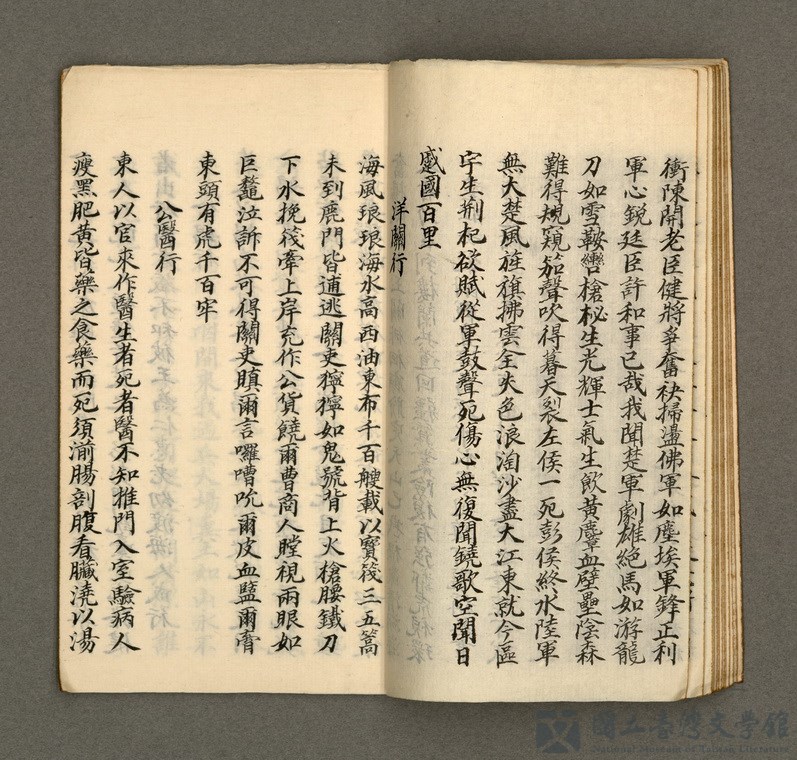 衝陳開老臣健將爭奮袂掃盪佛軍如塵埃軍鋒正利
軍心銳廷臣許和事已哉我聞楚軍劇雄絕馬如游龍
刀如雪鞍轡槍柲生光輝士氣生飲黃麞血壁壘陰森
難得規窺笳聲吹得暮天裂左侯一死彭侯終水陸軍
無大楚風旌旗拂雲全失色浪淘沙盡大江東就今區
宇生荆杞欲賦從軍鼓聲死傷心無復聞鐃歌空聞日
蹙國百里
洋關行
海風琅琅海水高西油東布千百艘載以寶筏三五篙
未到鹿門皆逋逃關吏獰獰如鬼號背上火槍腰鐵刀
下水挽筏牽上岸充作公貨饒爾曹商人瞠視兩眼如
巨鼇泣訴不可得關吏瞋爾言囉嘈吮爾皮血盬爾膏
東頭有虎千百牢
公醫行
東人以官來作醫生者死者醫不知推門入室驗病人
瘦黑肥黄皆藥之食藥而死須湔腸剖腹看臟澆以湯
國立臺灣文學館
National Museum of Taiwan Literature